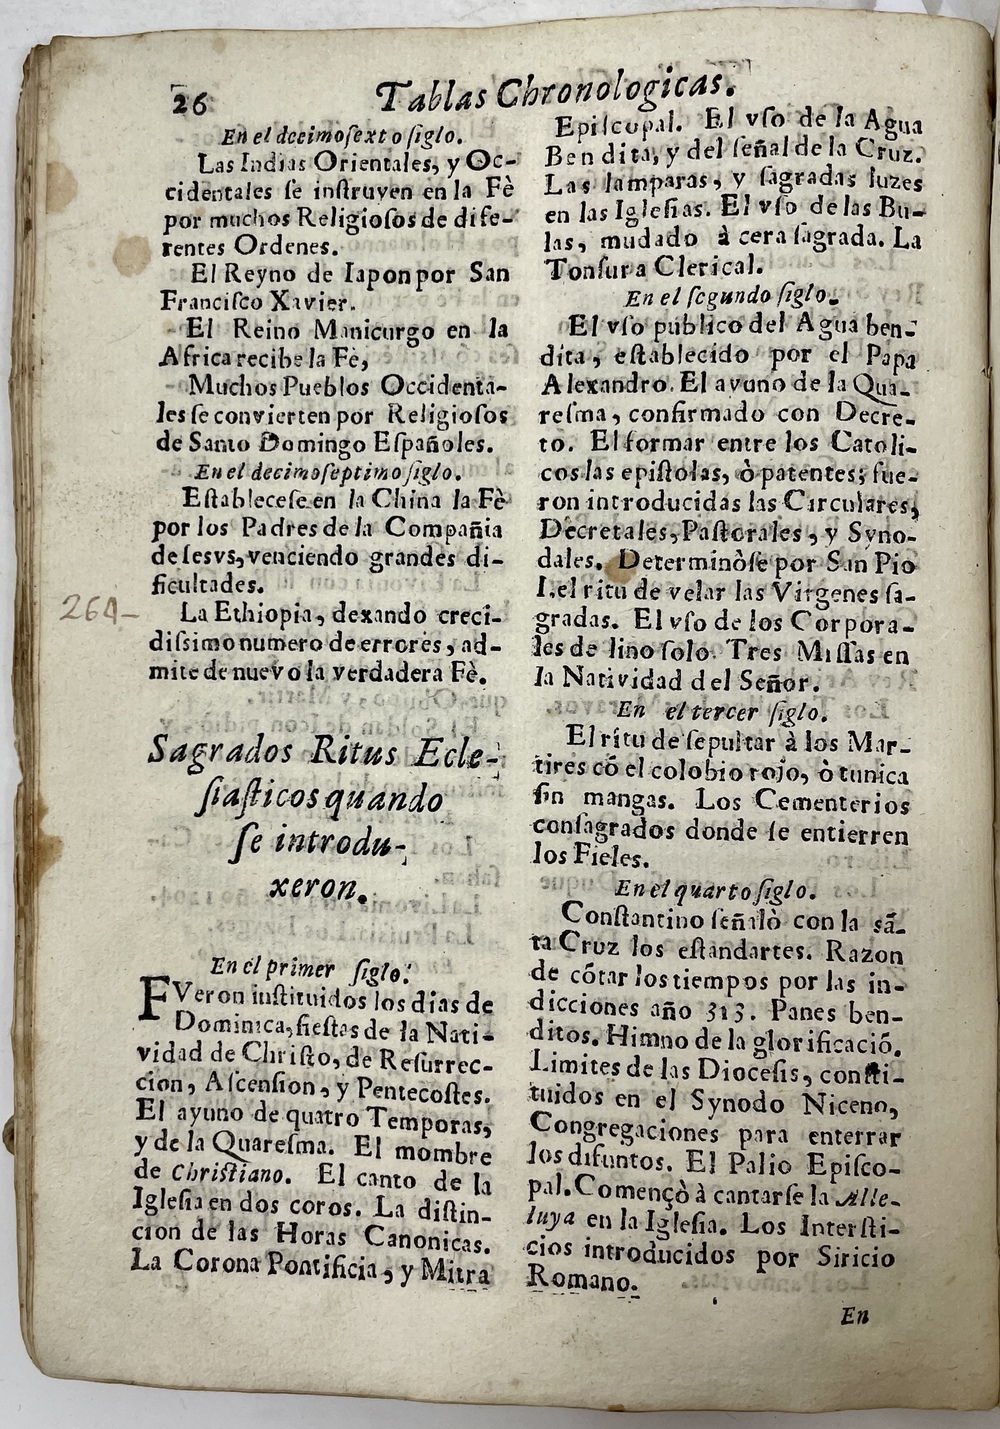 26
Tablas Chronologicas.
En el decimosexto siglo.
Las Indias Orientales, y Oc-
cidentales se instruyen en la Fè
por muchos Religiosos de dife-
rentes Ordenes.
El Reyno de Iapon por San
Francisco Xavier.
El Reino Manicurgo en la
Africa recibe la Fè,
Muchos Pueblos Occidenta-
les se convierten por Religiosos
de Santo Domingo Españoles.
En el decimoseptimo siglo.
Establecese en la China la Fè
por los Padres de la Compañia
de Iesvs, venciendo grandes di-
ficultades.
264-
La Ethiopia, dexando creci-
dissimo numero de errores, ad-
mite de nuevo la verdadera Fè.
Sagrados Ritus Ecle-
siasticos quando
se introdu-
xeron.
En el primer siglo.
FVeron instituidos los dias de
Dominica, fiestas de la Nati-
vidad de Christo, de Resurrec-
cion, Ascension, y Pentecostes.
El ayuno de quatro Temporas,
y de la Quaresma. El mombre
de Christiano. El canto de la
Iglesia en dos coros. La distin-
cion de las Horas Canonicas.
La Corona Pontificia, y Mitra
Episcopal. El vso de la Agua
Bendita, y del señal de la Cruz.
Las lamparas, y sagradas luzes
en las Iglesias. El vso de las Bu-
las, mudado à cera sagrada. La
Tonsura Clerical.
En el segundo siglo.
El vso publico del Agua ben-
dita, establecido por el Papa
Alexandro. El ayuno de la Qua-
resma, confirmado con Decre-
to. El formar entre los Catoli-
cos las epistolas, ò patentes; fue-
ron introducidas las Circulares,
Decretales, Pastorales, y Syno-
dales. Determinòse por San Pio
I. el ritu de velar las Virgenes sa-
gradas. El vso de los Corpora-
les de lino solo. Tres Missas en
la Natividad del Señor.
En el tercer siglo.
El ritu de sepultar à los Mar-
tires cõ el colobio rojo, ò tunica
sin mangas. Los Cementerios
consagrados donde se entierren
los Fieles.
En el quarto siglo.
Constantino señalò con la sã-
ta Cruz los estandartes. Razon
de cõtar los tiempos por las in-
dicciones año 313. Panes ben-
ditos. Himno de la glorificaciõ.
Limites de las Diocesis, consti-
tuidos en el Synodo Niceno,
Congregaciones para enterrar
los difuntos. El Palio Episco-
pal. Començò à cantarse la Alle-
luya en la Iglesia. Los Intersti-
cios introducidos por Siricio
Romano.
En